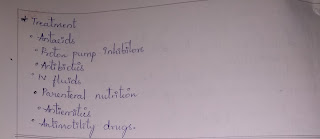 * Treatment
• Antacids
• Proton pump inhibitors
• Antibiotics
• IV fluids
• Parenteral nutrition
• Antiemetics
• Antimotility drugs.